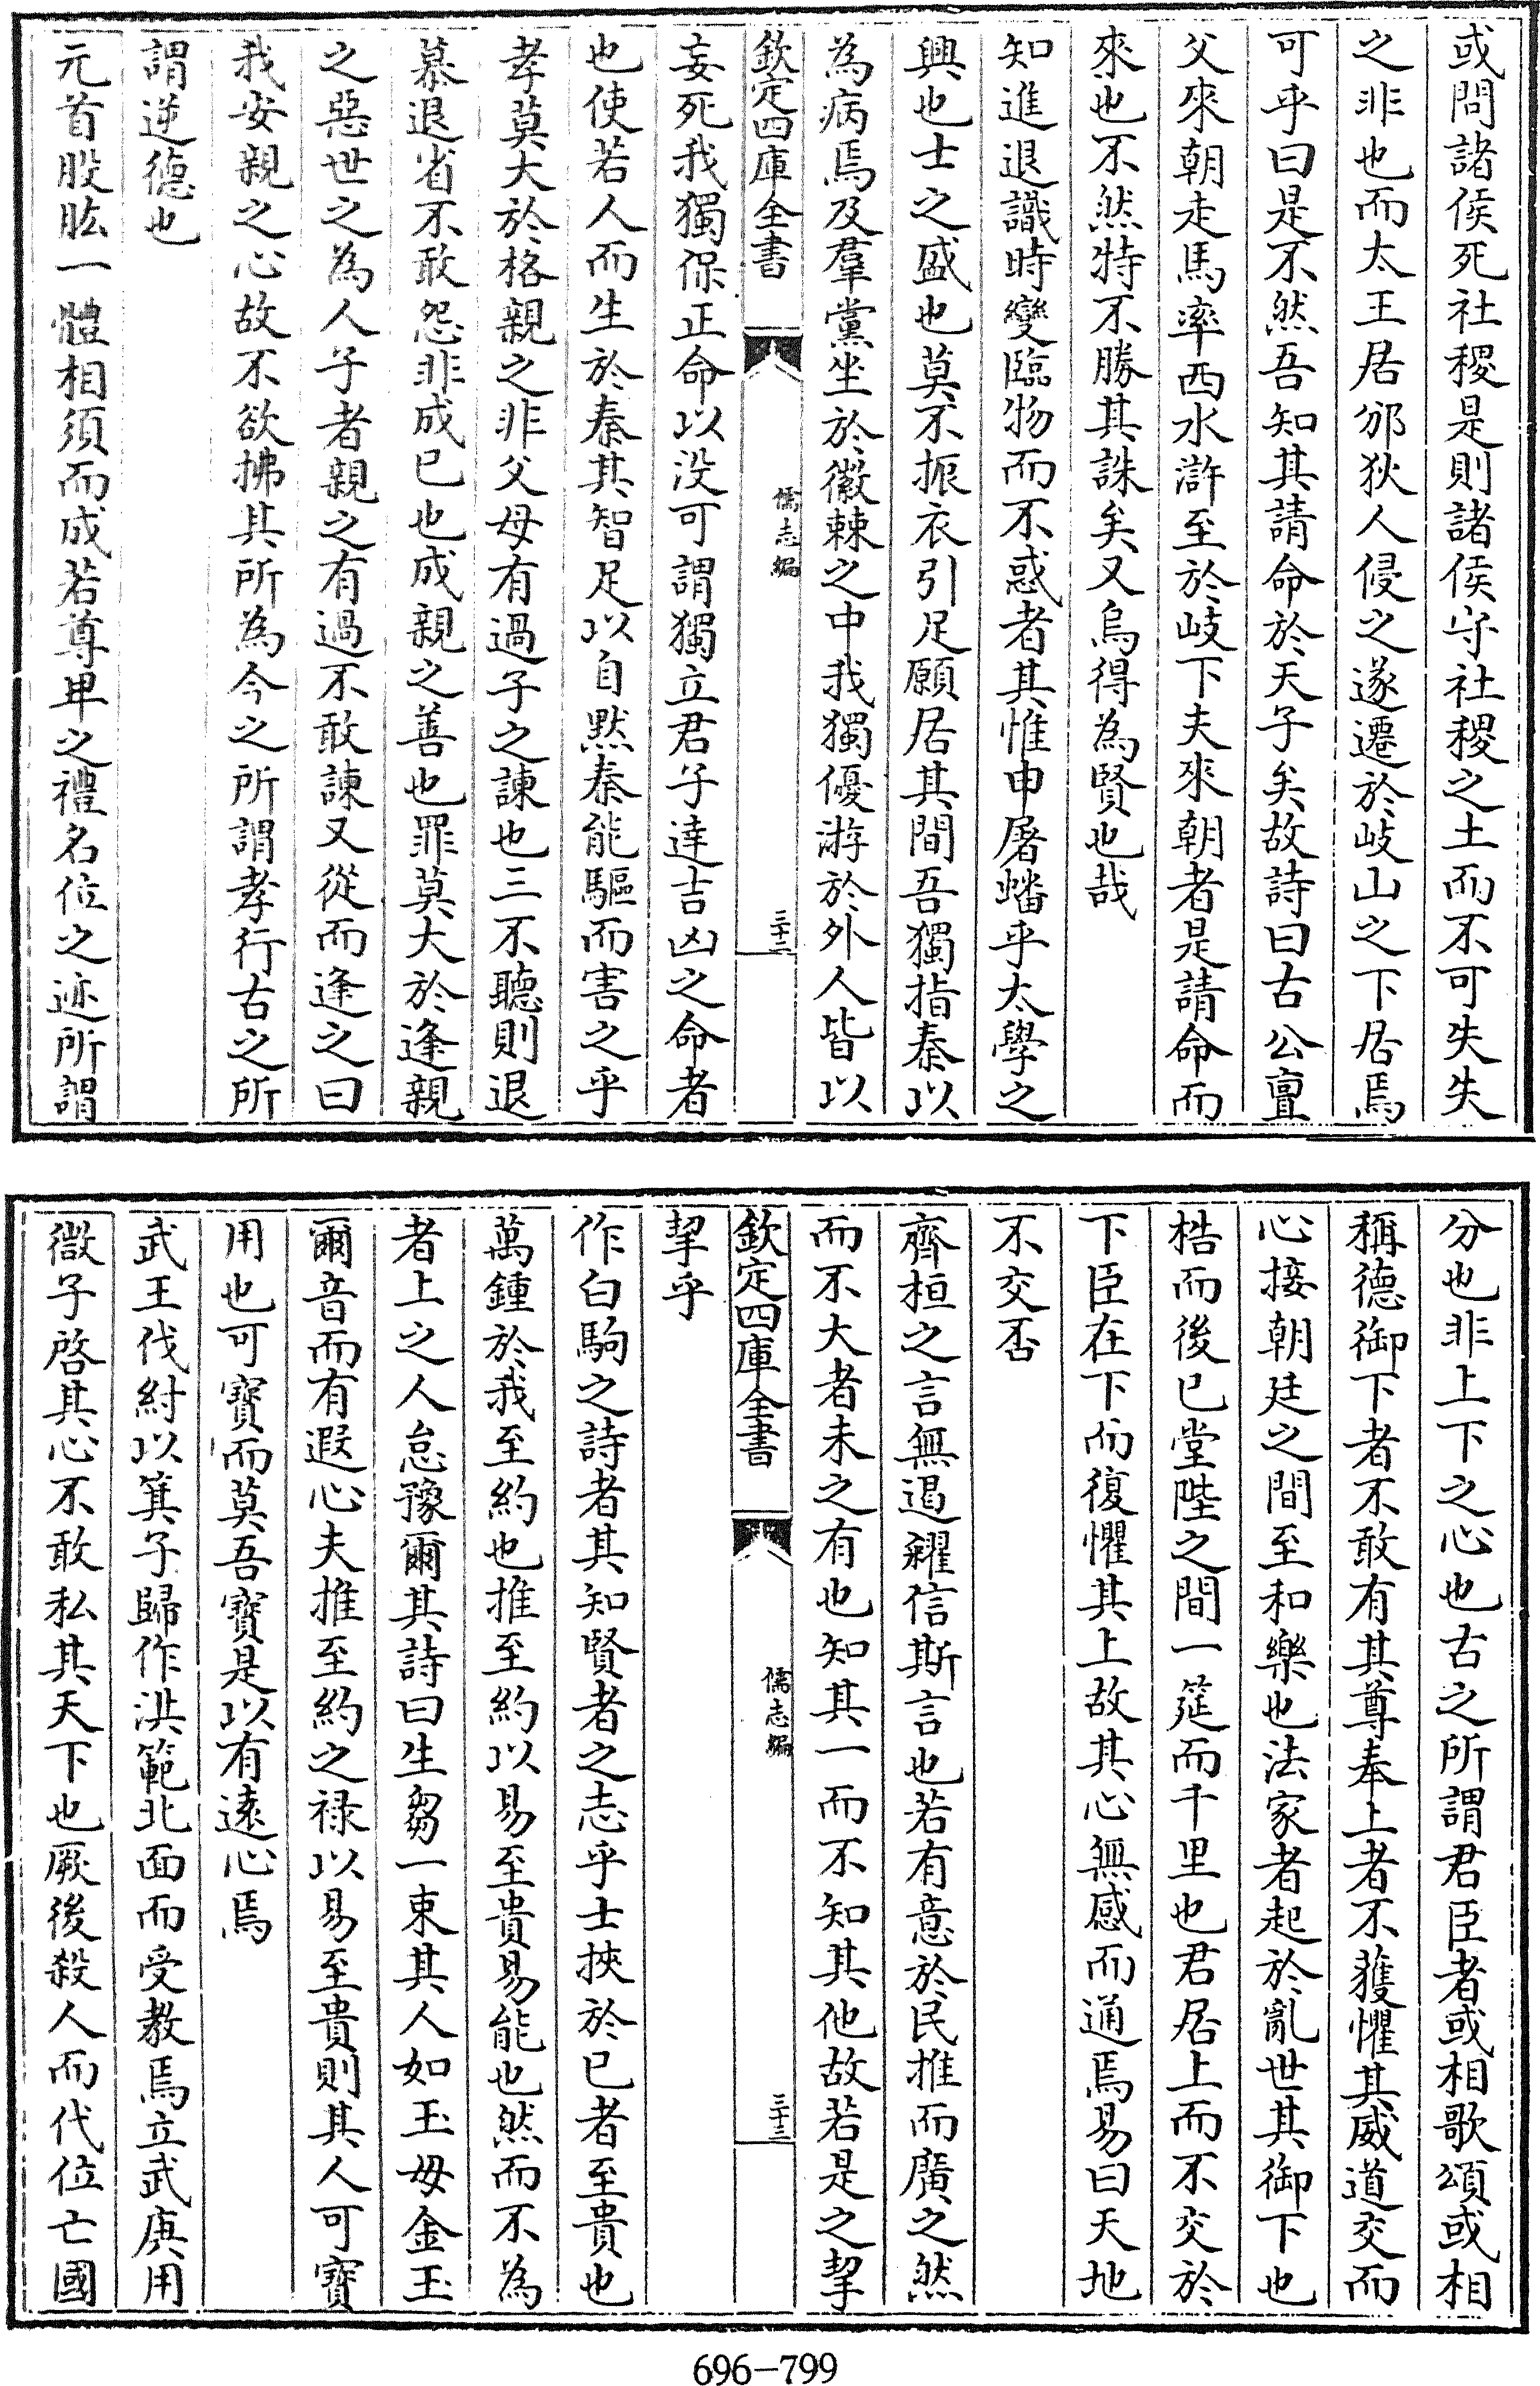 或問諸侯死社稷是則諸侯守社稷之土而不可失失
之非也而太王居邠狄人侵之遂遷於岐山之下居焉
可乎曰是不然吾知其請命於天子矣故詩曰古公亶
父來朝走馬率西水滸至於岐下夫來朝者是請命而
來也不然特不勝其誅矣又烏得為賢也哉
知進退識時變臨物而不惑者其惟申屠蟠乎太學之
興也士之盛也莫不振衣引足願居其間吾獨指秦以
為病焉及羣黨坐於徽棘之中我獨優游於外人皆以
欽定四庫全書
儒志編
三十二
妄死我獨保正命以沒可謂獨立君子達吉凶之命者
也使若人而生於秦其智足以自黙秦能驅而害之乎
孝莫大於格親之非父母有過子之諫也三不聽則退
慕退省不敢怨非成已也成親之善也罪莫大於逢親
之惡世之為人子者親之有過不敢諫又從而逢之曰
我安親之心故不欲拂其所為今之所謂孝行古之所
謂逆德也
元首股肱一體相須而成若尊卑之禮名位之迹所謂
分也非上下之心也古之所謂君臣者或相歌頌或相
稱德御下者不敢有其尊奉上者不獲懼其威道交而
心接朝廷之間至和樂也法家者起於亂世其御下也
梏而後已堂陛之間一筵而千里也君居上而不交於
下臣在下而復懼其上故其心無感而通焉易曰天地
不交否
齊桓之言無遏糴信斯言也若有意於民推而廣之然
而不大者未之有也知其一而不知其他故若是之挈
欽定四庫全書
儒志編
三十三
挈乎
作白駒之詩者其知賢者之志乎士挾於已者至貴也
萬鍾於我至約也推至約以易至貴易能也然而不為
者上之人怠豫爾其詩曰生芻一束其人如玉毋金玉
爾音而有遐心夫推至約之祿以易至貴則其人可寶
用也可寶而莫吾寶是以有遠心焉
武王伐紂以箕子歸作洪範北面而受教焉立武庚用
微子啓其心不敢私其天下也厥後殺人而代位亡國
696-799